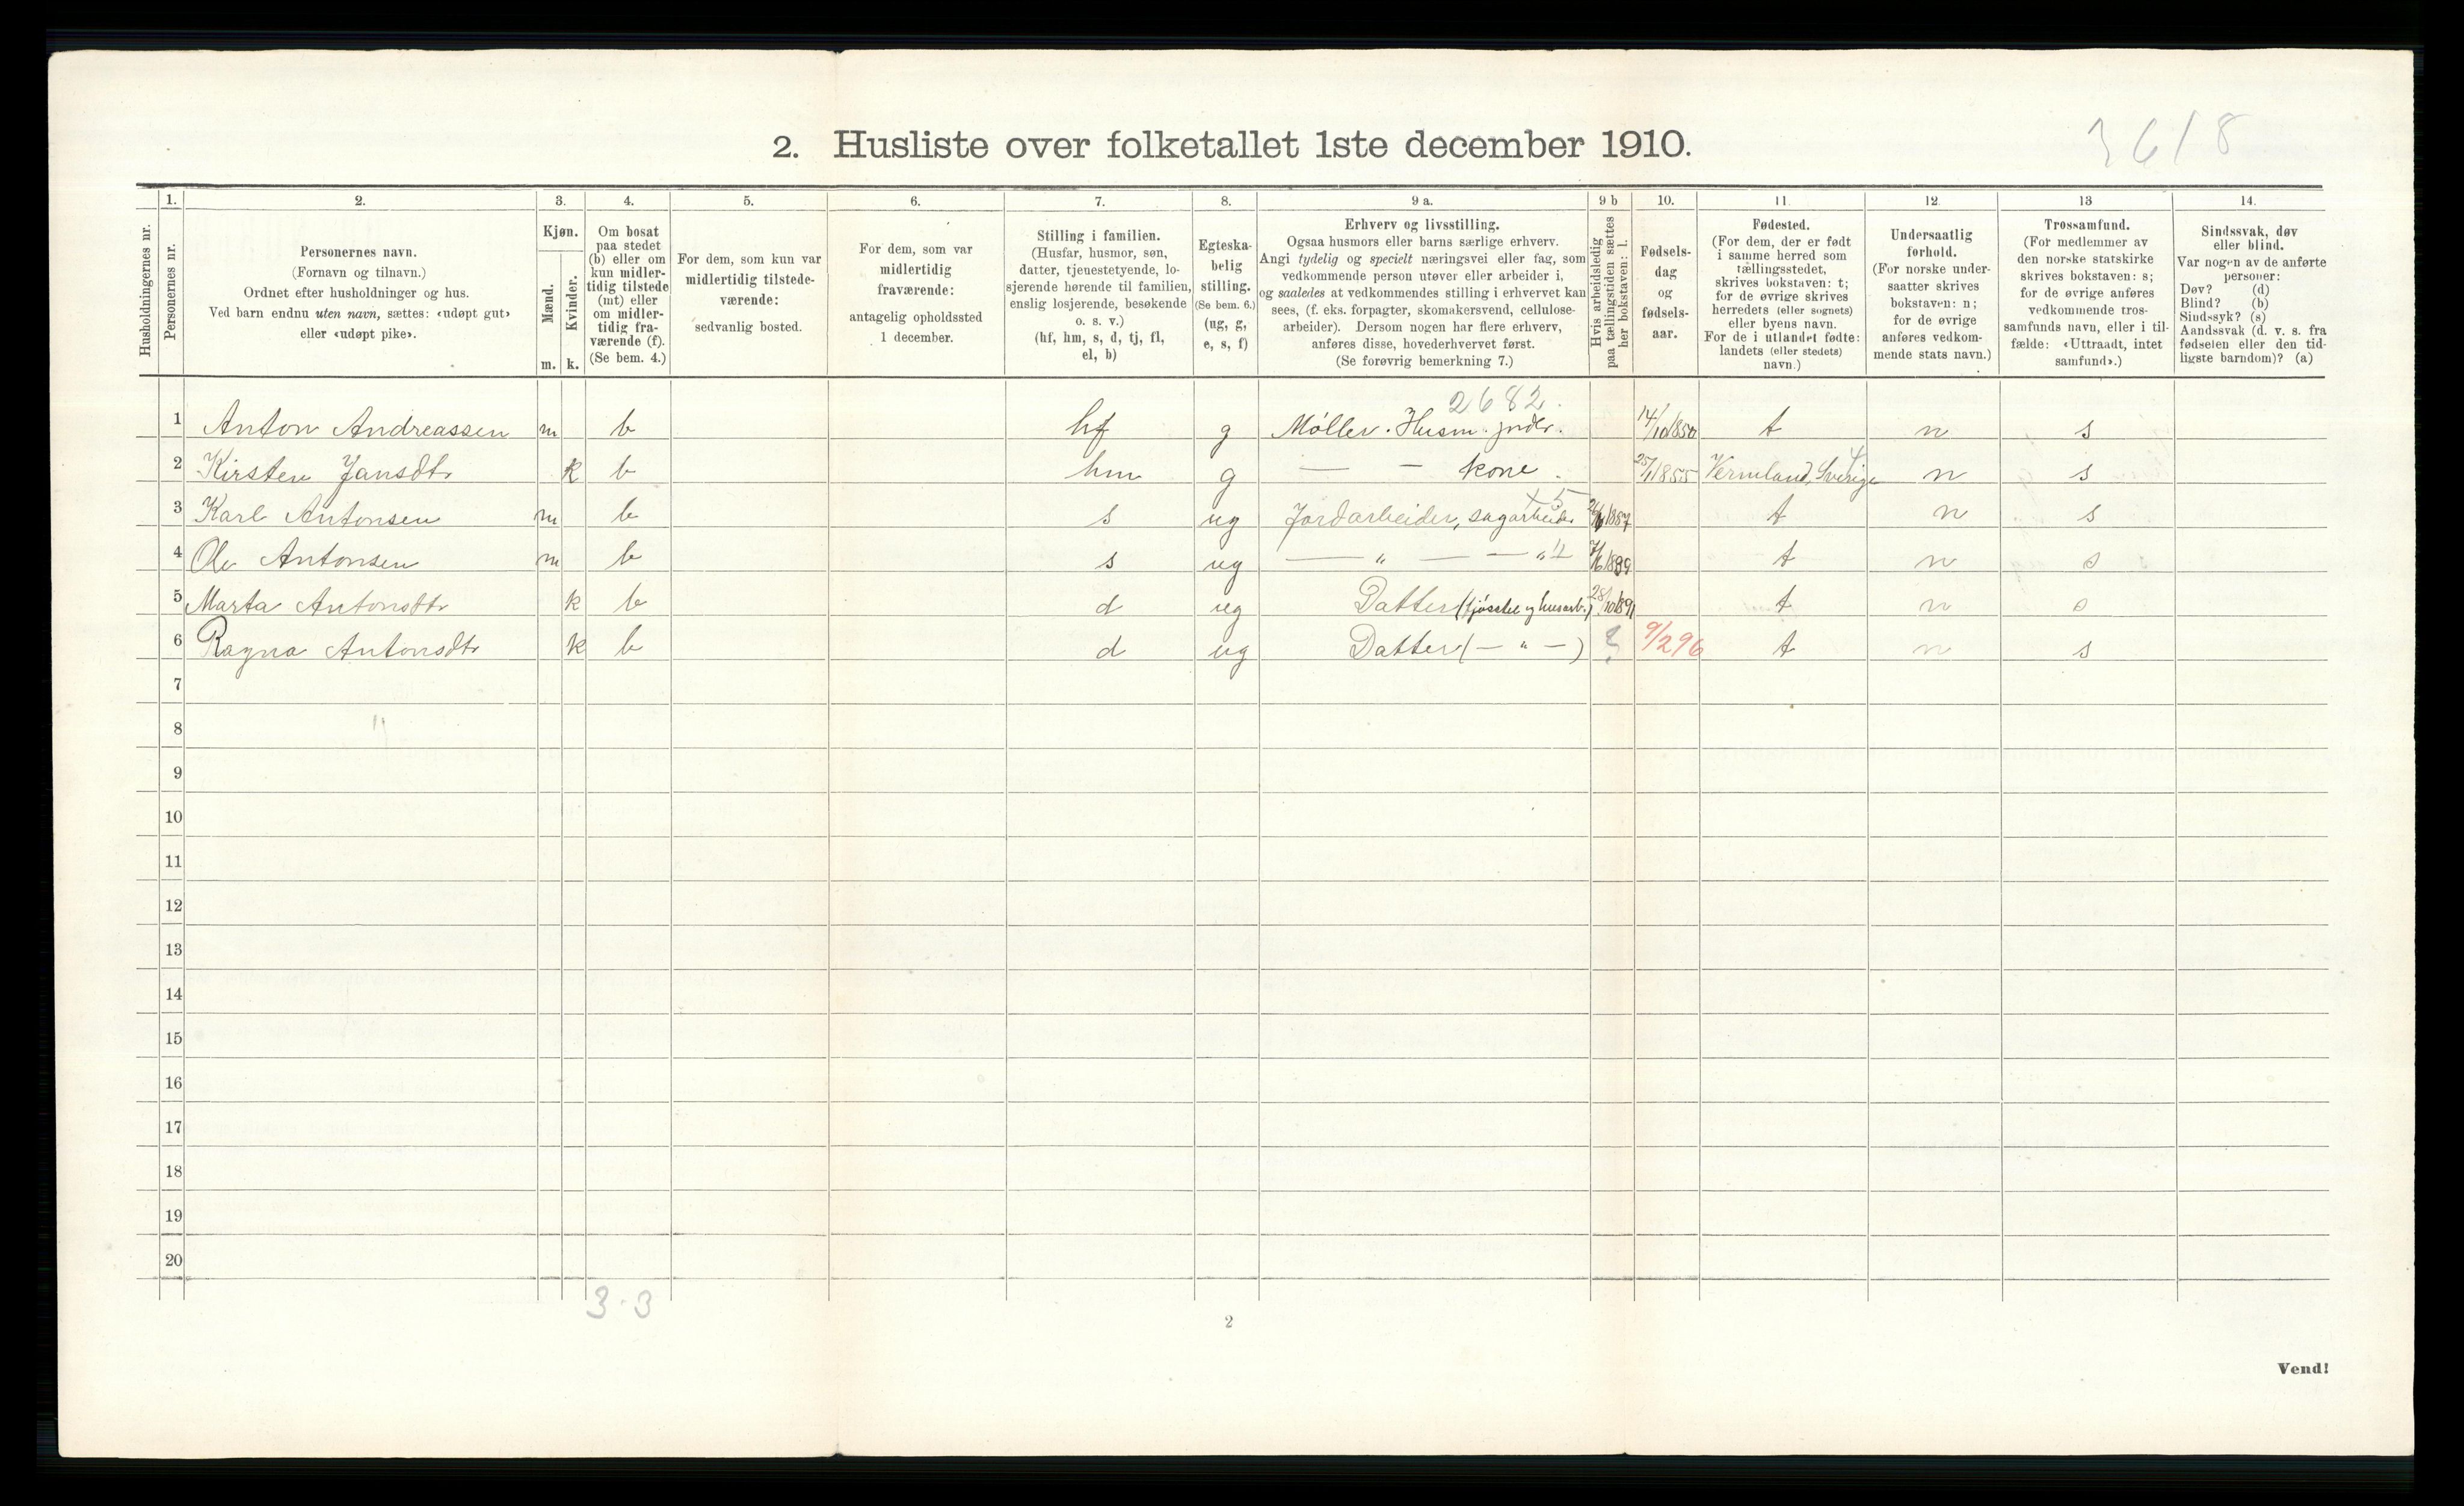 3618
2. Husliste over folketallet 1ste december 1910.
Husholdningernes nr.
1.
Personernes nr.
2.
Personernes navn.
(Fornavn og tilnavn.)
Ordnet efter husholdninger og hus.
Ved barn endnu uten navn, sættes: «udøpt gut»
eller «udøpt pike».
3.
Kjøn.
Mænd.
Kvinder.
m. k.
4.
Om bosat
paa stedet
(b) eller om
kun midler-
tidig tilstede
(mt) eller
om midler-
tidig fra-
værende (f).
(Se bem. 4.)
5.
For dem, som kun var
midlertidig tilstede-
værende:
sedvanlig bosted.
6.
For dem, som var
midlertidig
fraværende:
antagelig opholdssted
1 december.
7.
Stilling i familien.
(Husfar, husmor, søn,
datter, tjenestetyende, lo-
sjerende hørende til familien,
enslig losjerende, besøkende
o. s. v.)
(hf, hm, s, d, tj, fl,
el, b)
8.
Egteska-
belig
stilling.
(Se bem. 6.)
(ug, g,
e, s, f)
9 a.
Erhverv og livsstilling.
Ogsaa husmors eller barns særlige erhverv.
Angi tydelig og specielt næringsvei eller fag, som
vedkommende person utøver eller arbeider i,
og saaledes at vedkommendes stilling i erhvervet kan
sees, (f. eks. forpagter, skomakersvend, cellulose-
arbeider). Dersom nogen har flere erhverv,
anføres disse, hovederhvervet først.
(Se forøvrig bemerkning 7.)
9 b
Hvis arbeidsledig
paa tællingstiden sættes
her bokstaven: l.
10.
Fødsels-
dag
og
fødsels-
aar.
11.
Fødested.
(For dem, der er født
i samme herred som
tællingsstedet,
skrives bokstaven: t;
for de øvrige skrives
herredets (eller sognets)
eller byens navn.
For de i utlandet fødte:
landets (eller stedets)
navn.)
12.
Undersaatlig
forhold.
(For norske under-
saatter skrives
bokstaven: n;
for de øvrige
anføres vedkom-
mende stats navn.)
13
Trossamfund.
(For medlemmer av
den norske statskirke
skrives bokstaven: s;
for de øvrige anføres
vedkommende tros-
samfunds navn, eller i til-
fælde: «Uttraadt, intet
samfund».)
14.
Sindssvak, døv
eller blind.
Var nogen av de anførte
personer:
Døv? (d)
Blind? (b)
Sindssyk? (s)
Aandssvak (d. v. s. fra
fødselen eller den tid-
ligste barndom)? (a)
2682.
1 Anton Andreassen m b hf g Møller. Husm. jnder. 14/10 1850 t n s
2 Kirsten Jansdtr k b hm g — — kone. 25/1 1855 Vermland, Sverige n s
3 Karl Antonsen m b s ug Jordarbeider, sagarbeider 1887 t n s
4 Ole Antonsen m b s ug — " — — " t n s
5 Marta Antonsdtr k b d ug Datter (fjøsstel og husarb.) 28/10 1891 t n s
6 Ragna Antonsdtr k b d ug Datter (— " —) ? 9/2 96 t n s
7
8
9
10
11
12
13
14
15
16
17
18
19
20
3·3
2
Vend!